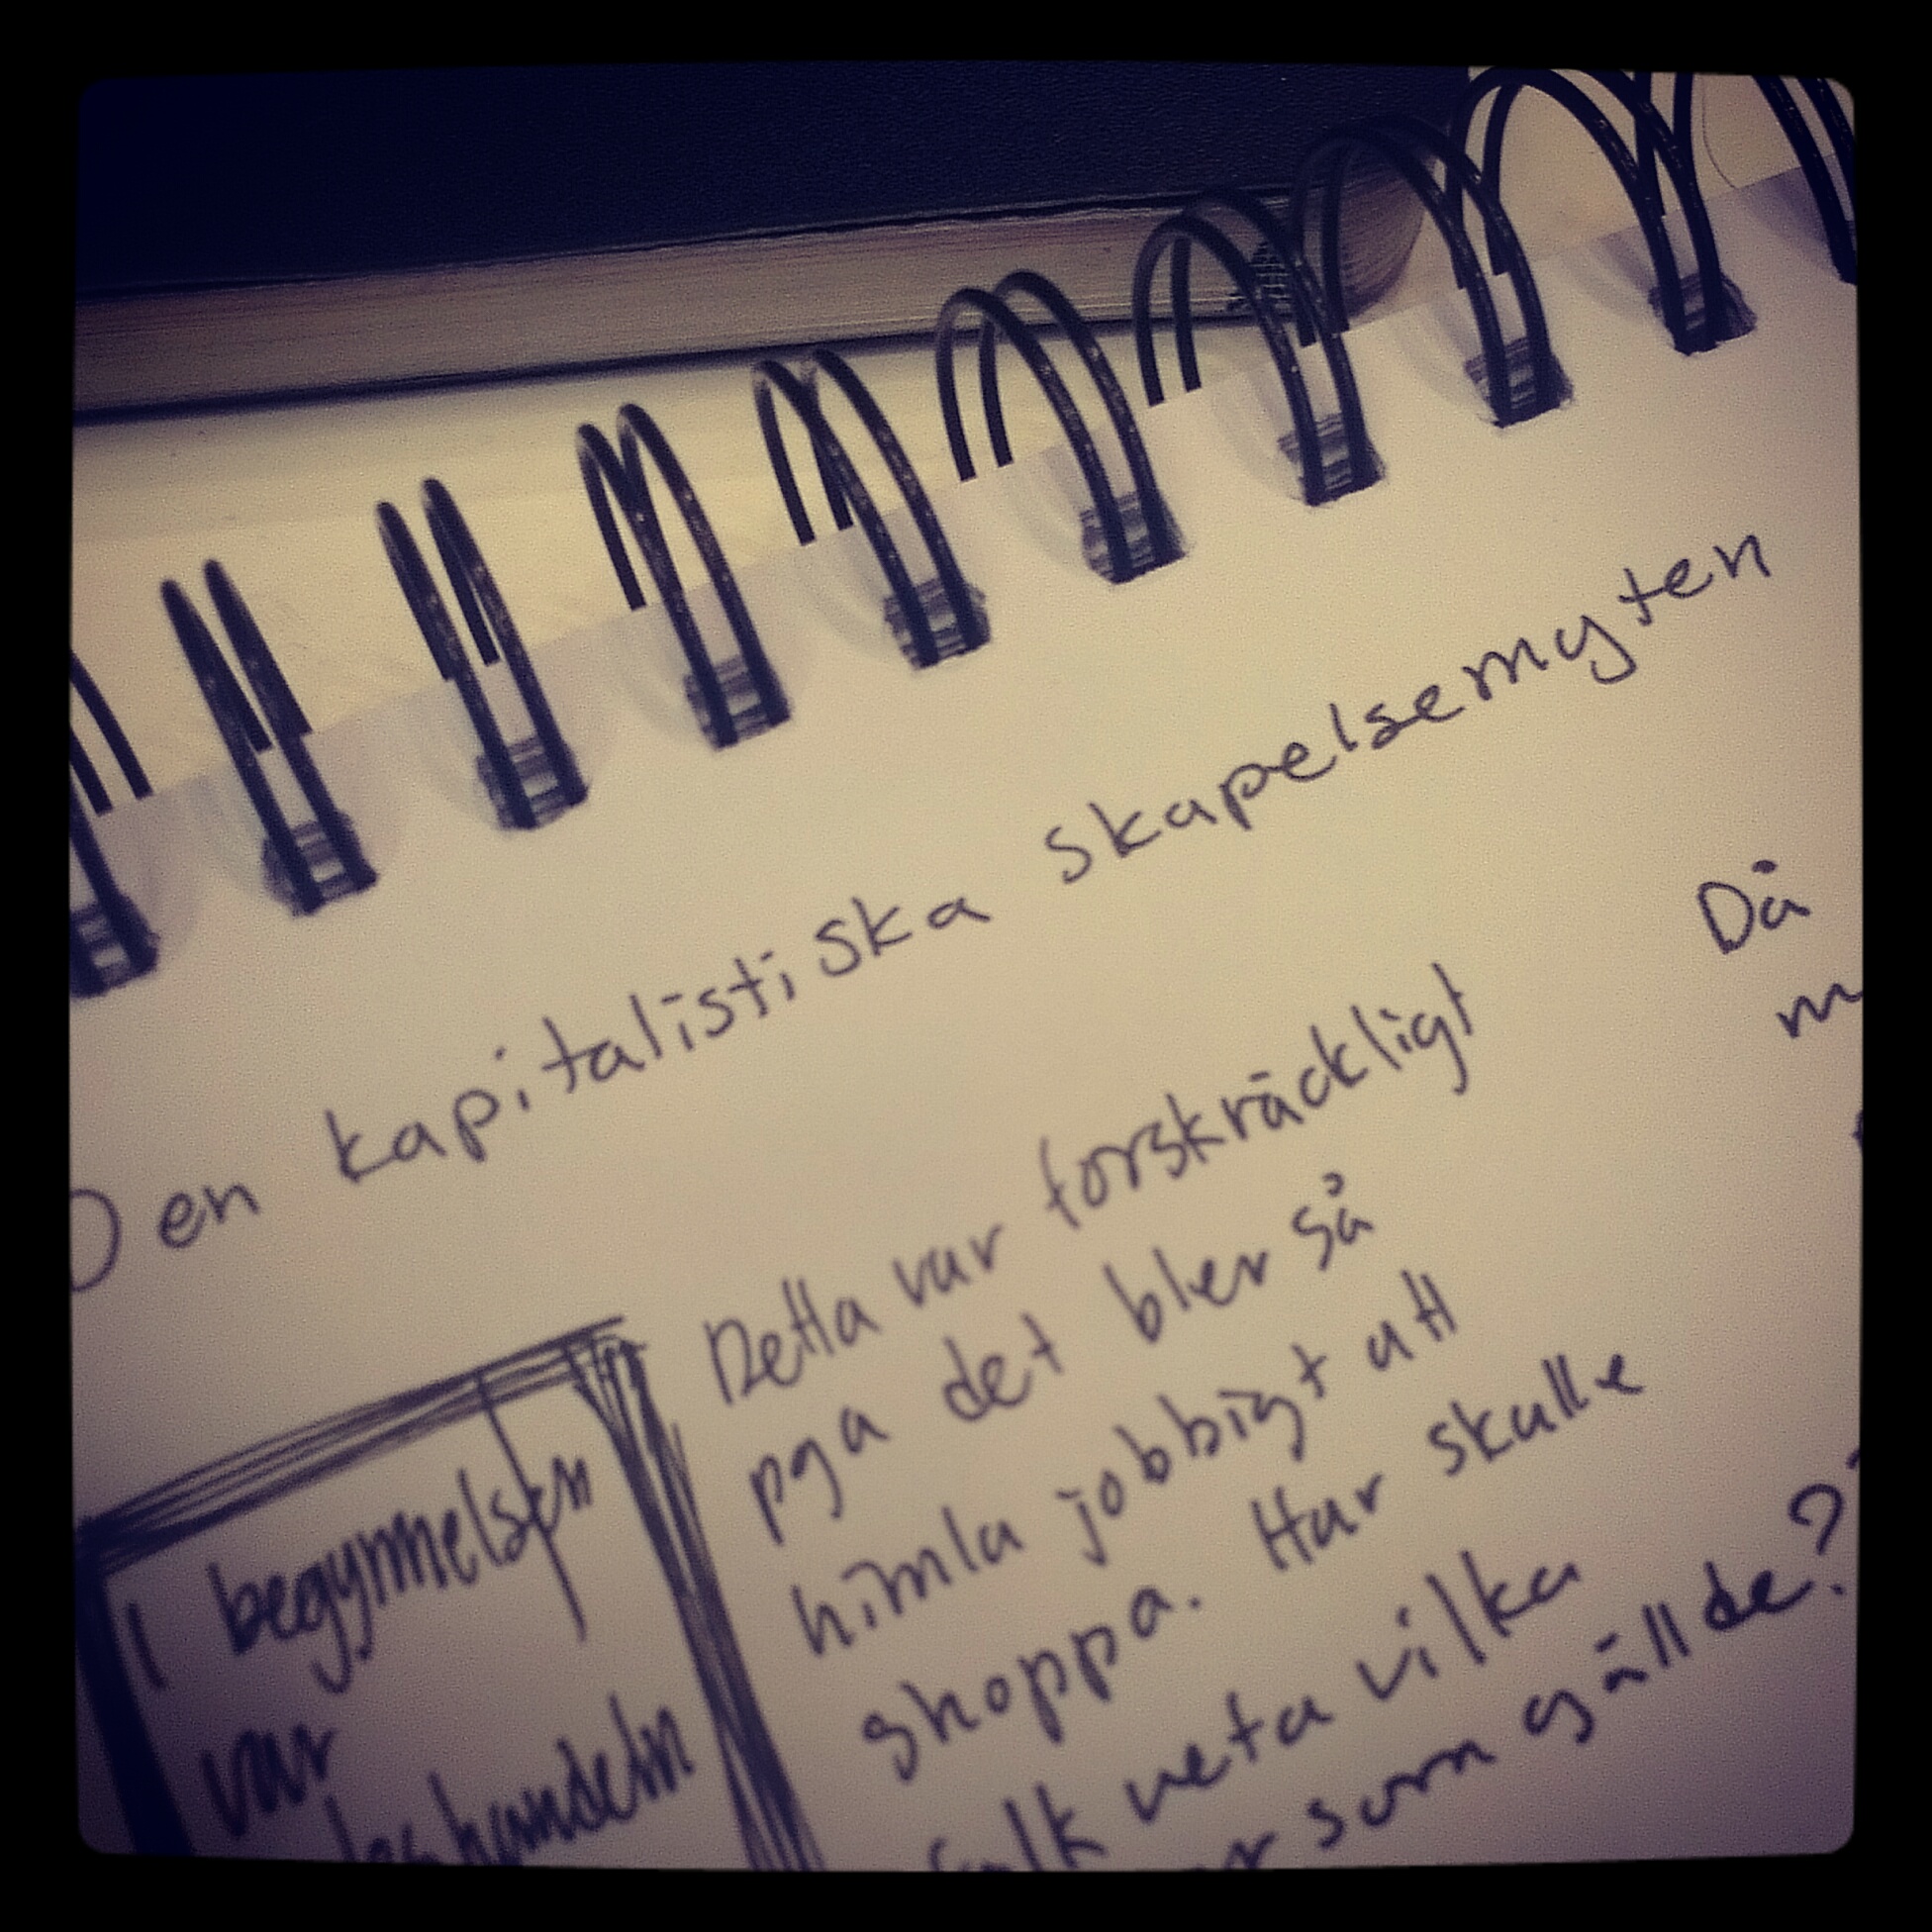 Den kapitalistiska skapelsemyten
I begynnelsen
var
handeln
Detta var förskräckligt
pga det blev så
himla jobbigt att
shoppa. Hur skulle
folk veta vilka
som gällde?
Då